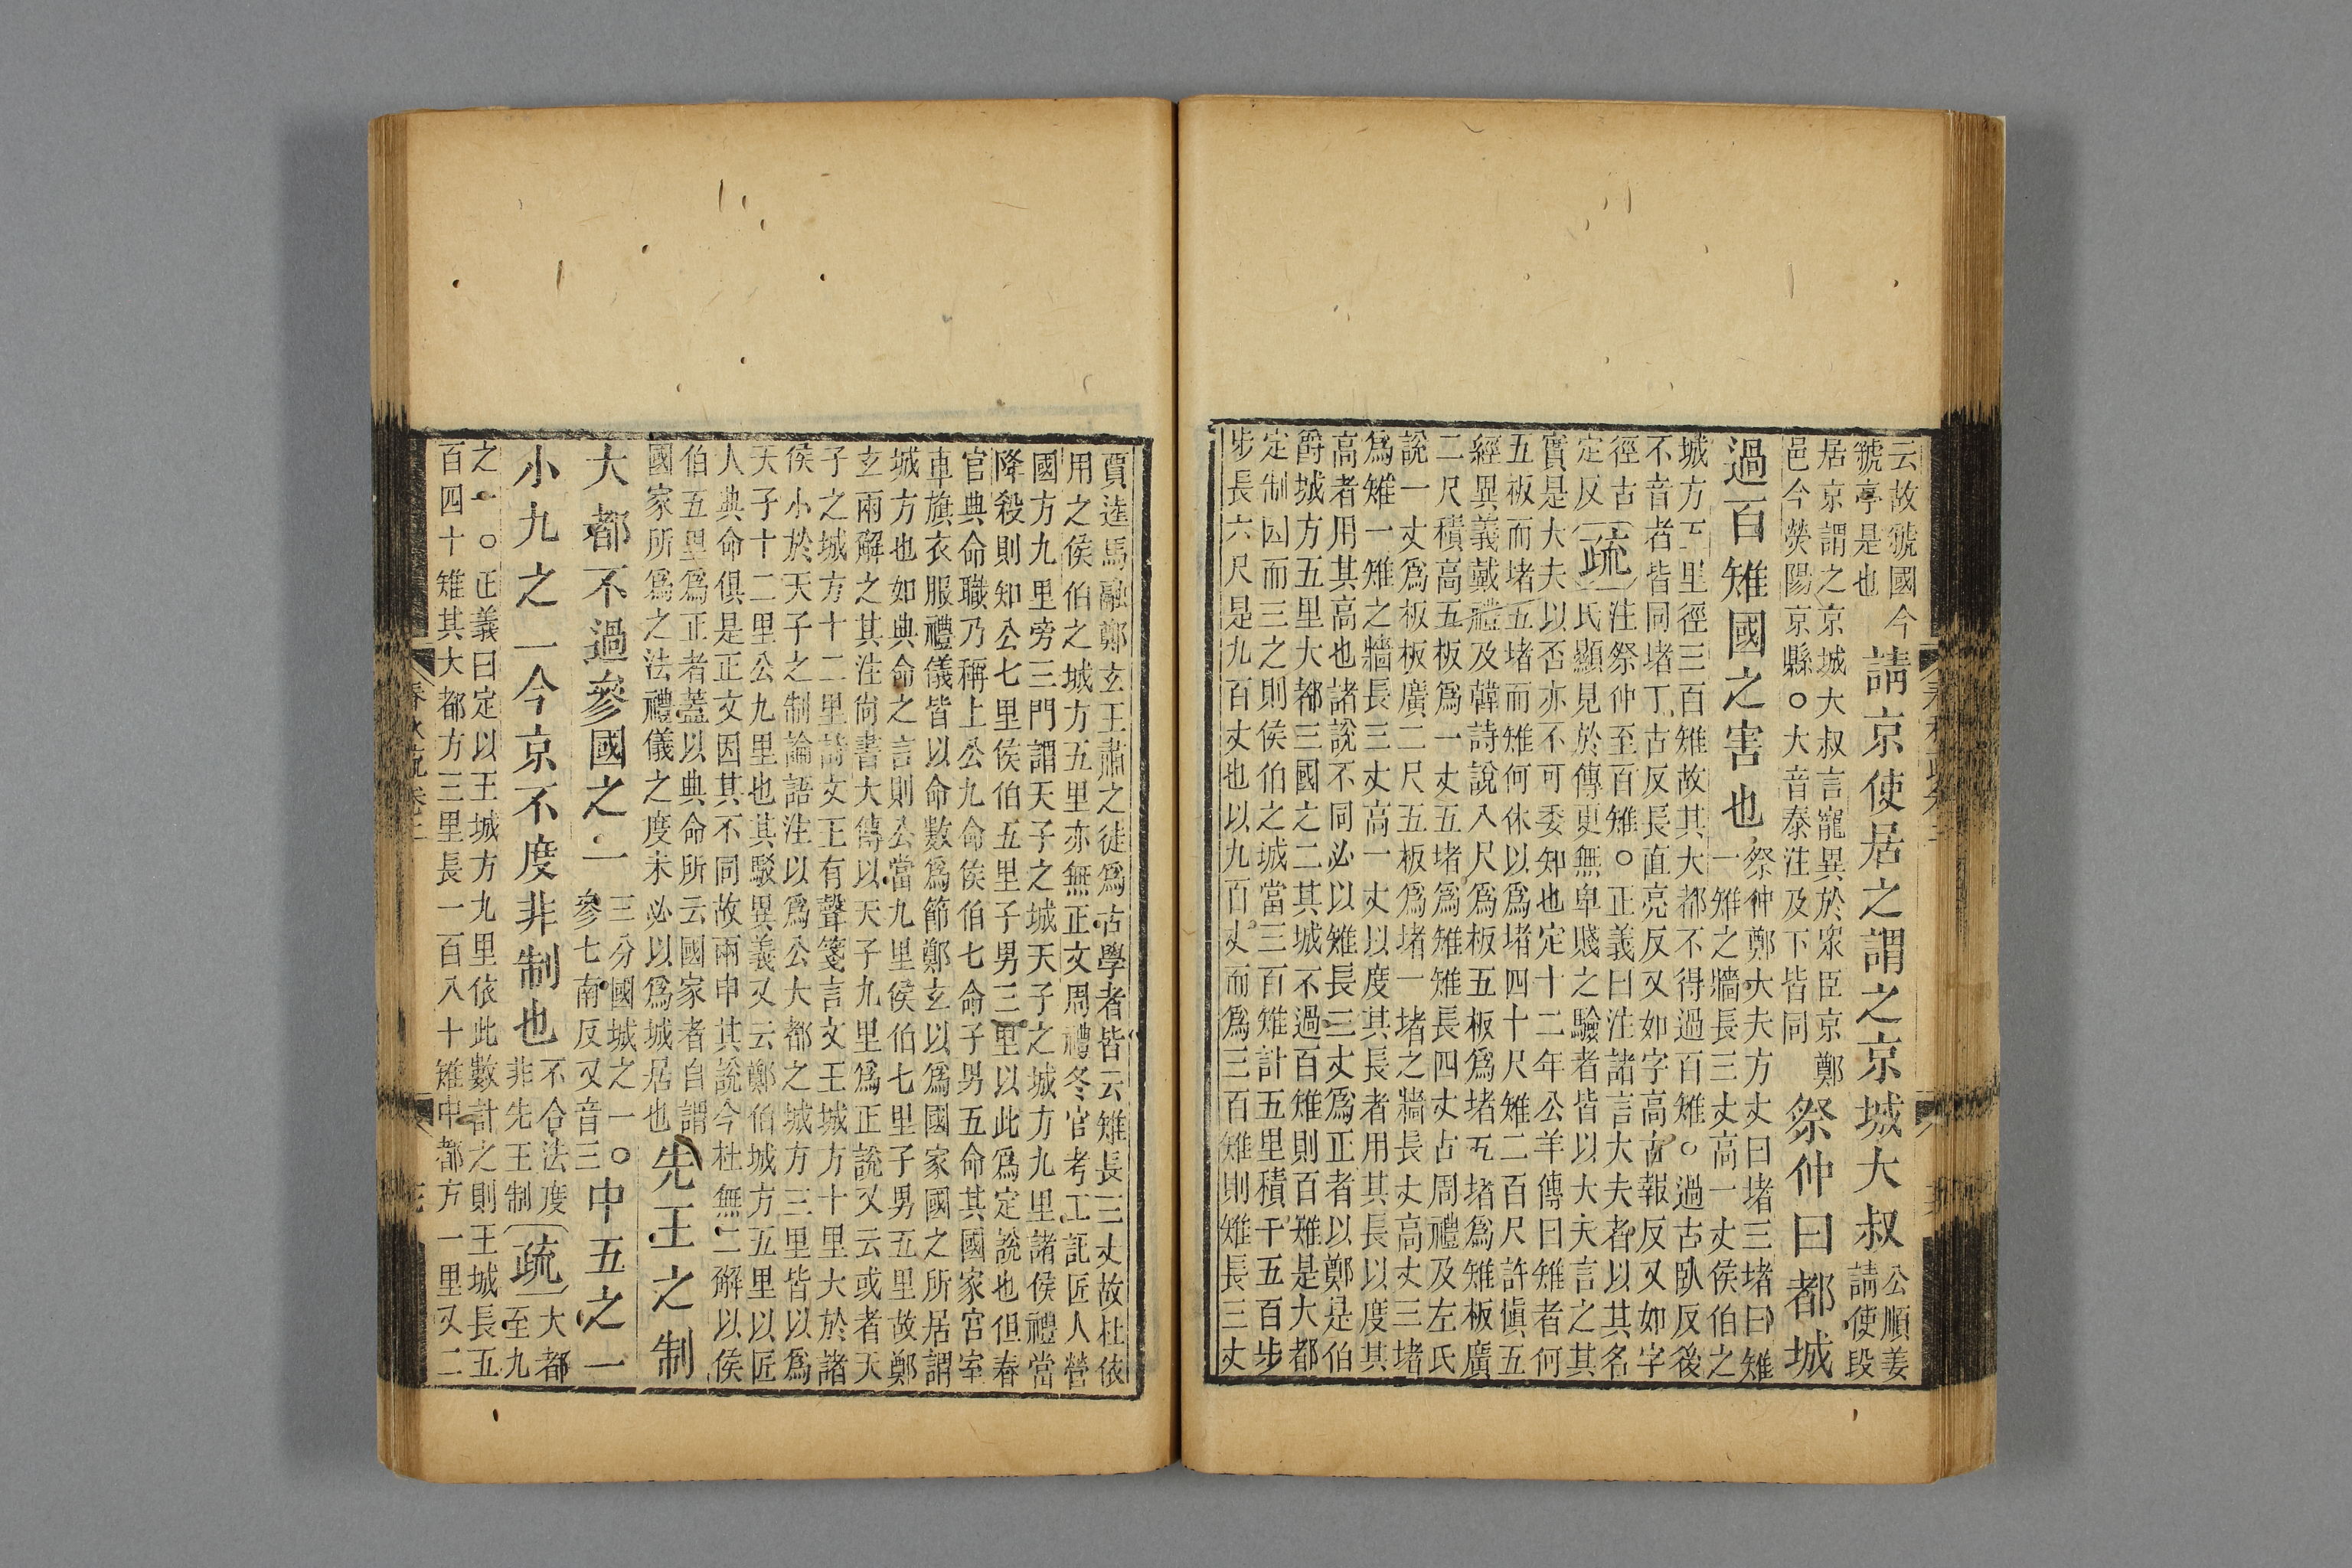 云故虢國今
虢亭是也
請京使居之謂之京城大叔
公順姜
請使段
居京謂之京城大叔言寵異於眾臣京鄭
邑今滎陽京縣○大音泰注及下皆同
祭仲曰都城
過百雉國之害也
祭仲鄭大夫方丈曰堵三堵曰雉
一雉之牆長三丈高一丈侯伯之
城方五里徑三百雉故其大都不得過百雉○過古臥反後
不音者皆同堵丁古反長直亮反又如字高古報反又如字
徑古
定反
疏
注祭仲至百雉○正義曰注諸言大夫者以其名
氏顯見於傳更無卑賤之驗者皆以大夫言之其
實是大夫以否亦不可委知也定十二年公羊傳曰雉者何
五板而堵五堵而雉何休以爲堵四十尺雉二百尺許慎五
經異義戴禮及韓詩說八尺爲板五板爲堵五堵爲雉板廣
二尺積高五板爲一丈五堵爲雉雉長四丈古周禮及左氏
說一丈爲板板廣二尺五板爲堵一堵之牆長丈高丈三堵
爲雉一雉之牆長三丈高一丈以度其長者用其長以度其
高者用其高也諸說不同必以雉長三丈爲正者以鄭是伯
爵城方五里大都三國之二其城不過百雉則百雉是大都
定制因而三之則侯伯之城當三百雉計五里積千五百步
步長六尺是九百丈也以九百丈而爲三百雉則雉長三丈
賈逵馬融鄭玄王肅之徒爲古學者皆云雉長三丈故杜依
用之侯伯之城方五里亦無正文周禮冬官考工記匠人營
國方九里旁三門謂天子之城天子之城方九里諸侯禮當
降殺則知公七里侯伯五里子男三里以此爲定說也但春
官典命職乃稱上公九命侯伯七命子男五命其國家宮室
車旗衣服禮儀皆以命數爲節鄭玄以爲國家國之所居謂
城方也如典命之言則公當九里侯伯七里子男五里故鄭
玄兩解之其注尚書大傳以天子九里爲正說又云或者天
子之城方十二里詩文王有聲箋言文王城方十里大於諸
侯小於天子之制論語注以爲公大都之城方三里皆以爲
天子十二里公九里也其駁異義又云鄭伯城方五里以匠
人典命俱是正文因其不同故兩申其說今杜無二解以侯
伯五里爲正者蓋以典命所云國家者自謂
國家所爲之法禮儀之度未必以爲城居也
先王之制
大都不過參國之一
三分國城之一○
參七南反又音三
中五之一
小九之一今京不度非制也
不合法度
非先王制
疏
大都
至九
之一○正義曰定以王城方九里依此數計之則王城長五
百四十雉其大都方三里長一百八十雉中都方一里又二